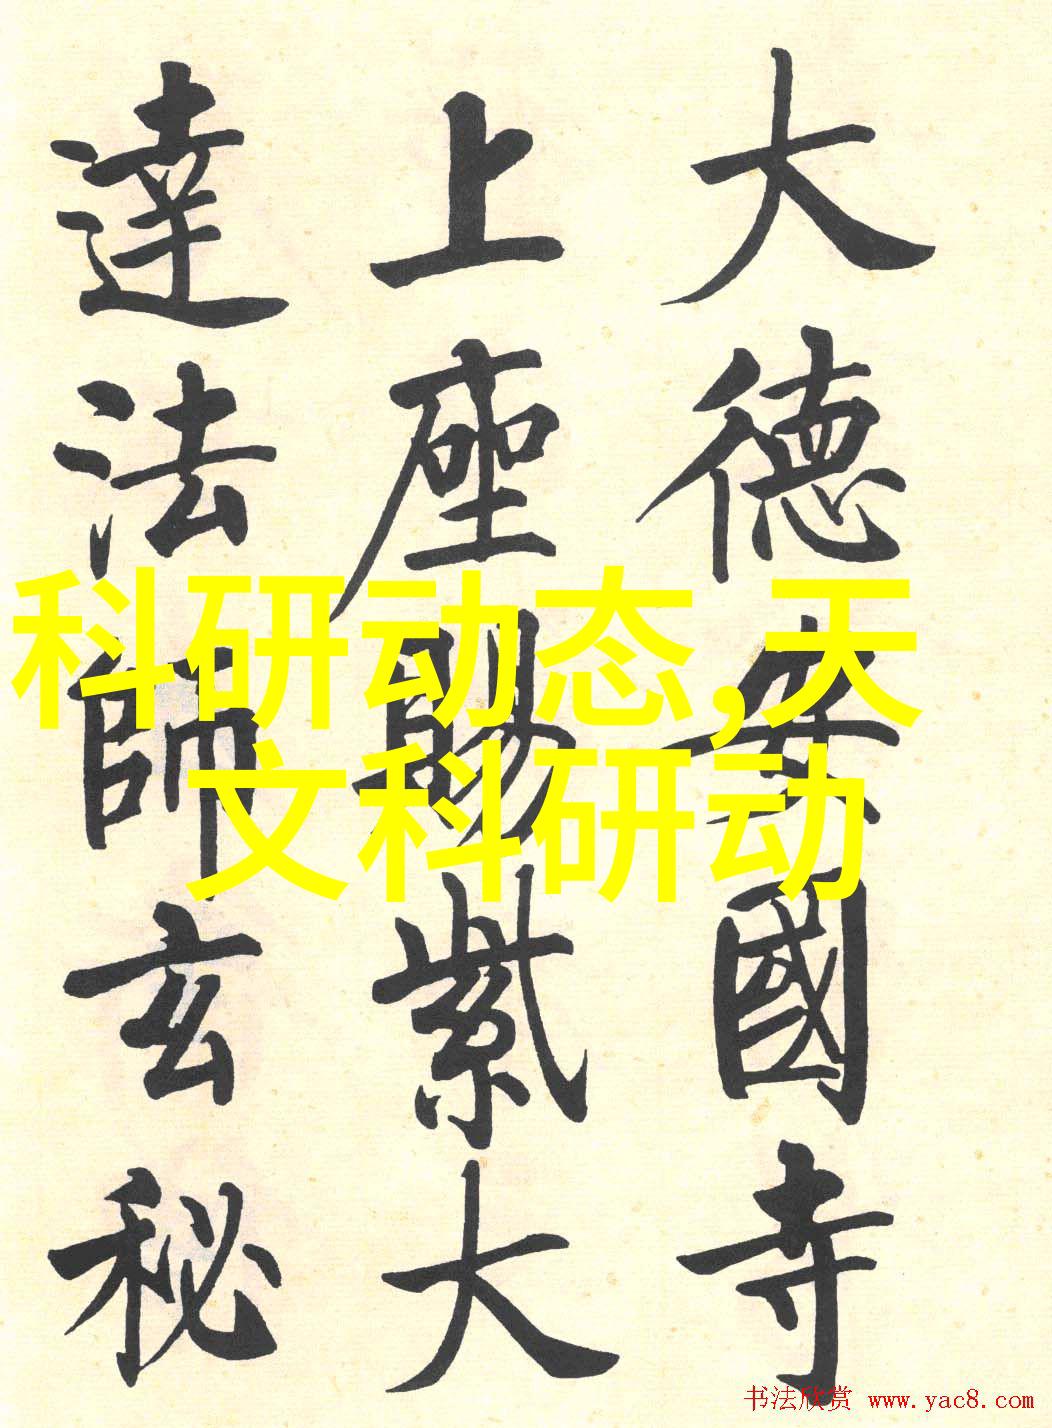 大德安國寺
上座賜紫大
達法師玄秘
科研动态,天
文科研动
书法欣赏 www.yac8.com